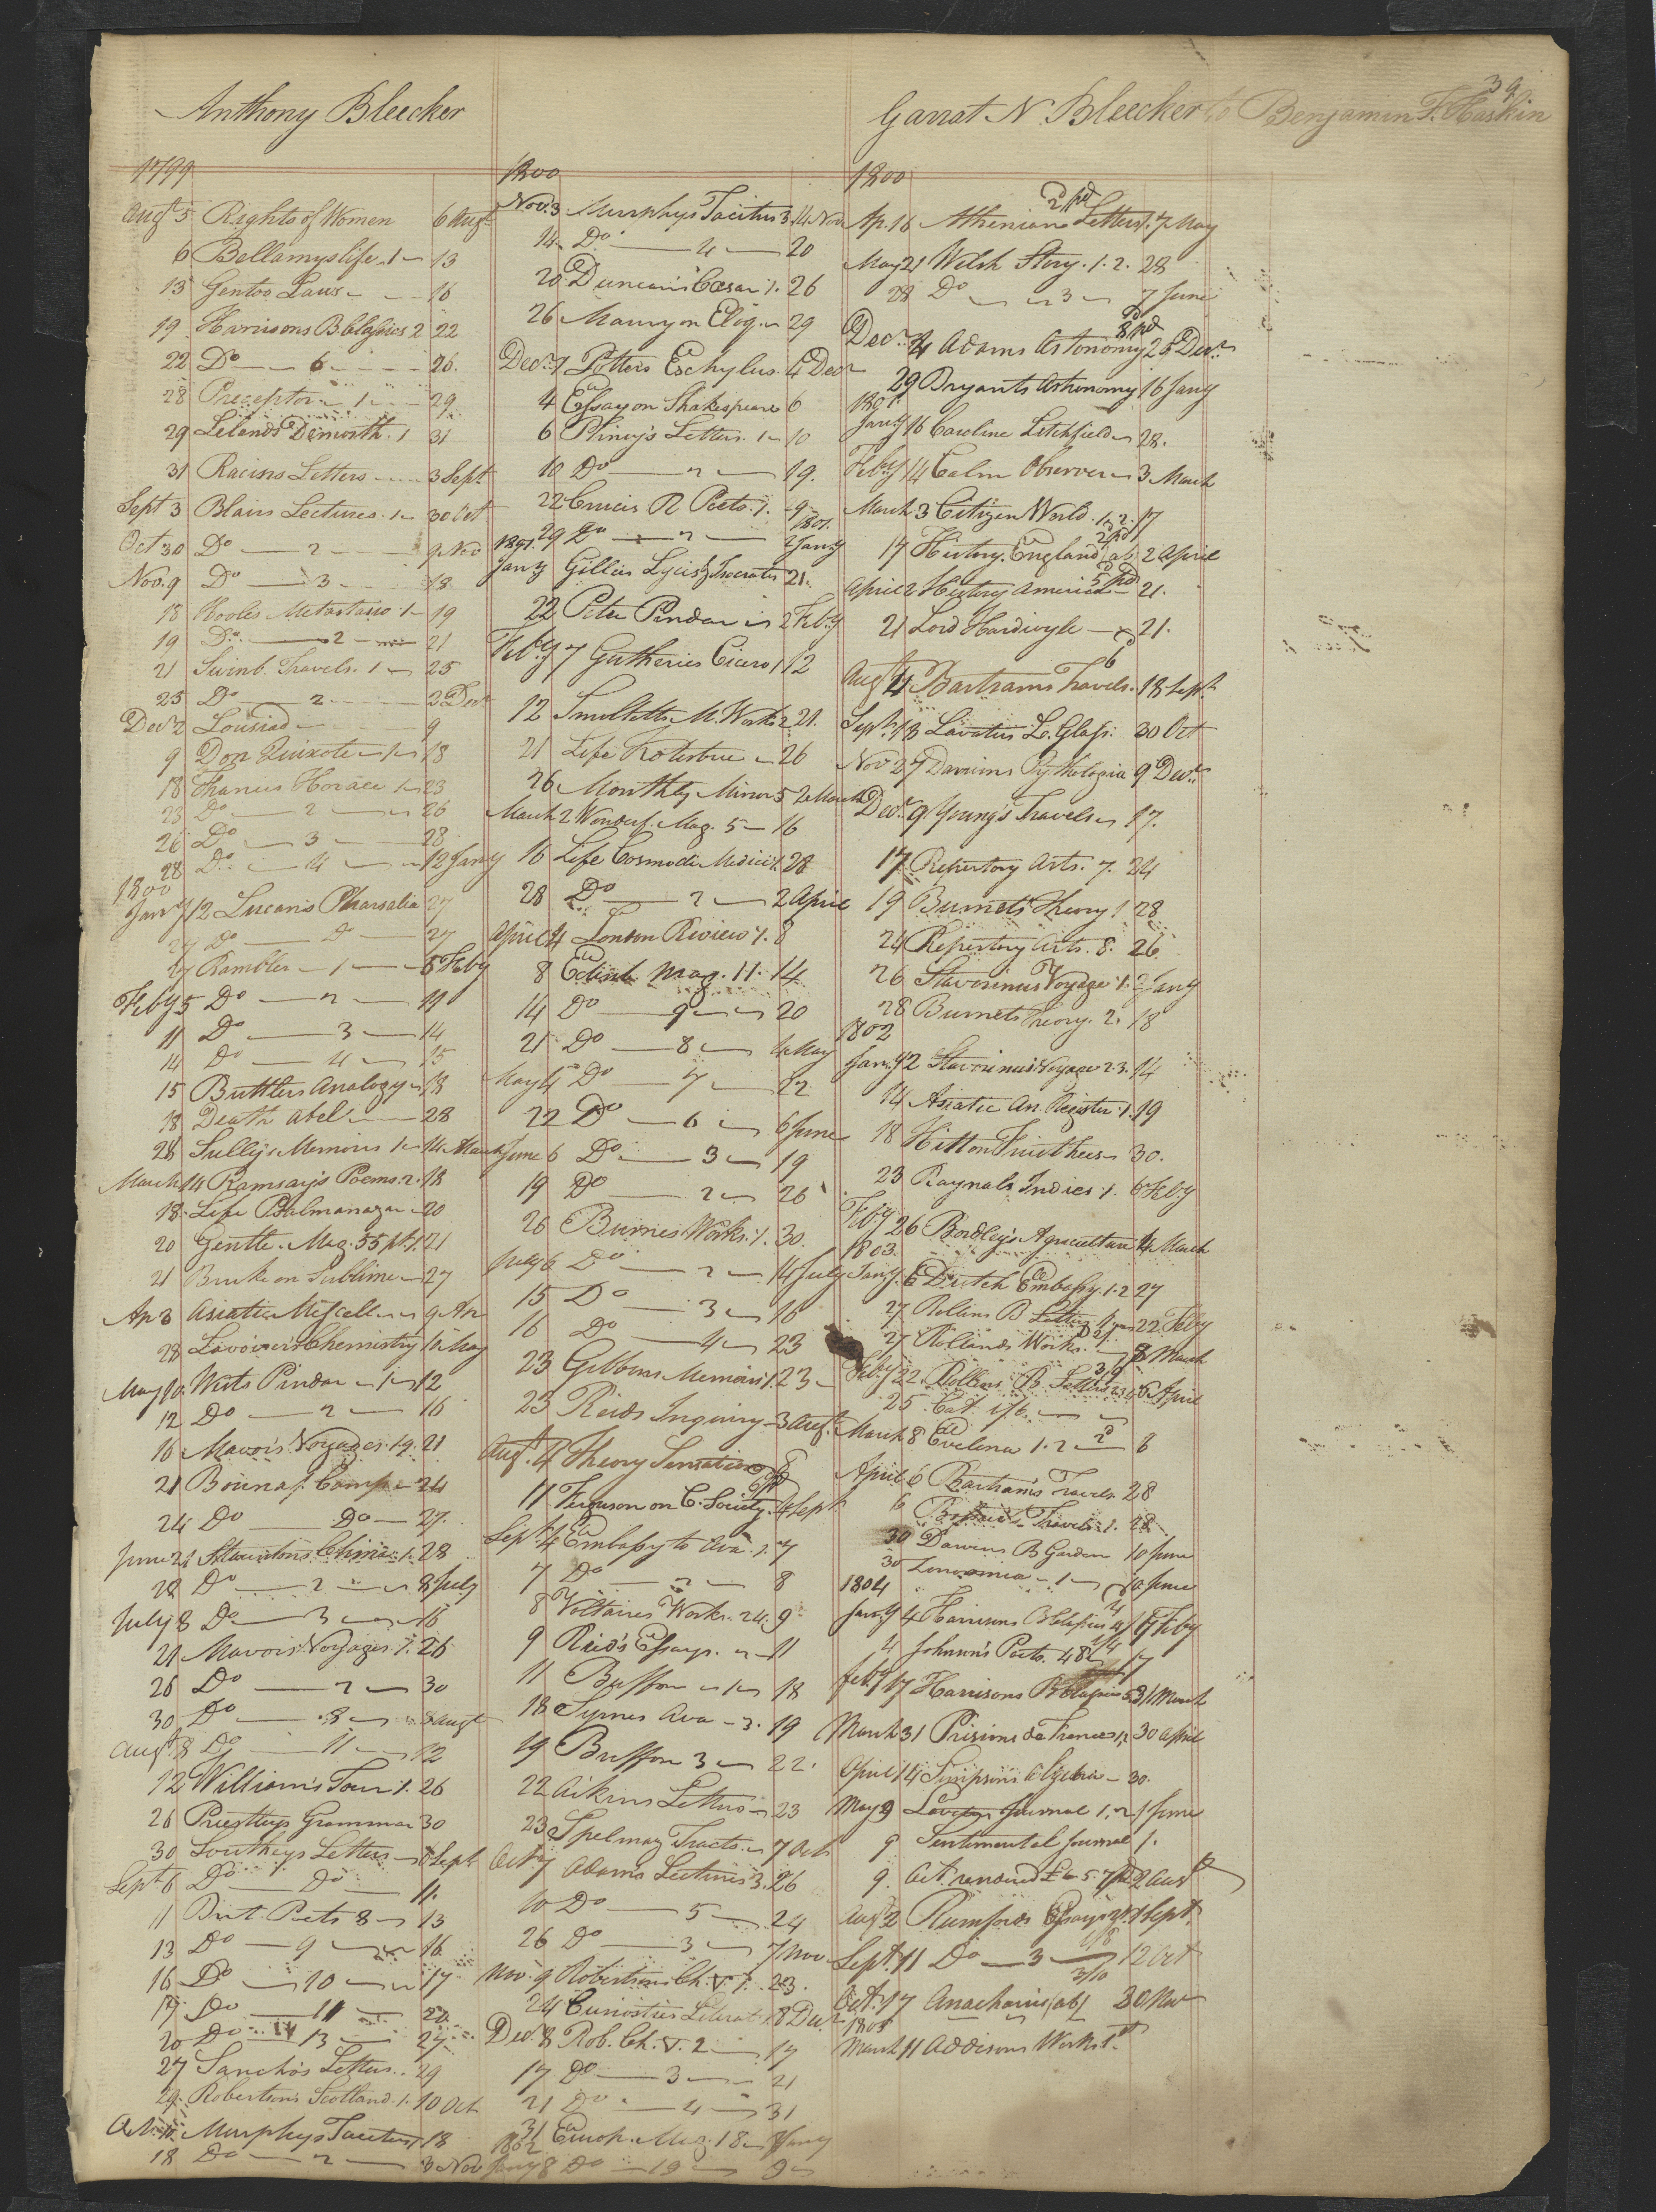 39
Anthony Bleecker
Garrat N. Bleecker to Benjamin F. Haskin
1799
Augt 5 Rights of Women 6 Augt
6 Bellamys life 1 13
13 Gentoo Laws 16
19 Harrisons B Classics 2 22
22 Do 6 26.
28 Preceptor 1 29
29 Lelands Demosth. 1 31
31 Racins Letters 3 Sept
Sept 3 Blairs Lectures 1 30 Oct
Oct 30 Do 2 9 Nov
Nov. 9 Do 3 18
18 Hooles Metastasio 1 19
19 Do 2 21
21 Swinb. Travels. 1 25
25 Do 2 2 Decr
Decr 2 Lousiad 9
9 Don Quixote 1 18
18 Francis Horace 1 23
23 Do 2 26
26 Do 3 28
28 Do 4 12 Jany
1800
Jany 12 Lucans Pharsalia 27
27 Do Do 27
27 Rambler 1 5 Feby
Feby 5 Do 2 11
11 Do 3 14
14 Do 4 15
15 Buttlers Analogy 18
18 Death Abel 28
28 Sullys Memoirs 1 14 March
March 14 Ramsay's Poems. 2. 18
18 Life Psalmanazar 20
20 Gentle. Mag. 55 pt. 1. 21
21 Burke on Sublime 27
Ap 3 Asiatic Miscell. 9 Ap
28 Lavoisiers Chemistry 10 May
May 10 Wests Pindar 1 12
12 Do 2 16
16 Mavors Voyages 19. 21
21 Bourna. Comp. 24
24 Do Do 27.
June 21 Stauntons China 1. 28
28 Do 2 8 July
July 8 Do 3 15
21 Mavors Voyages. 1. 26
26 Do 2 30
30 Do 8 8 Augt
Augt 8 Do 11 12
12 Williams Tour 1. 26
26 Priestleys Grammar 30
30 Southeys Letters 6 Sept
Sept 6 Do Do 11.
11 Brit. Poets 8 13
13 Do 9 16
16 Do 10 17
17 Do 11 20
20 Do 13 27
27 Sancho's Letters. 29
29. Robertsons Scotland. 1. 10 Oct
Murphys Tacitus 1 18
18 Do 2 3 Nov
1800
Nov. 3 Murphys Tacitus 3. 14 Nov
14 Do 4 20
20 Duncans Cæsar 1. 26
26 Maury on Eloq. 29
Decr 1 Potters Eschylus. 4 Decr
4 Essay on Shakespeare 6
6 Pliney's Letters. 1 10
10 Do 2 19.
22 R Poets. 1. 9
29 Do 2 1801. 2 Jany
1801. Jany Gillies Lycis & Isocrates 21.
22 Peter Pindar 2 Feby
Feby 7 Gutheries Cicero 1 12
12 Smolletts M. Works 2 21.
21 Life Kotzebue 26
26 Monthly Mirror 5 2 March
March 2 Wonderf. Mag. 5 16
16 Life Cosmo de Medici 1. 28
28 Do 2 2 April
April 4 London Review 1. 8
8 Edinb. Mag. 11. 14
14 Do 9 20
21 Do 8 4 May
May 4 Do 7 22
22 Do 6 6 June
June 6 Do 3 19
19 Do 2 26
26 Burns Works. 1. 30.
July 6 Do 2 14 July
15 Do 3 16
16 Do 4 23
23 Gibbons Memoirs 1. 23
23 Reids Inquiry 3 Augt
Augt 4 Theory Sensation 8
11 Ferguson on C. Society. 4 Sept
Sept 4 Embassy to Ava. 1. 7
7 Do 2 8
8 Voltaires Works. 24. 9
9 Reid's Essays. 11
11 Buffon 1 18
18 Symes Ava 3. 19
19 Buffon 3 22.
22 Aikins Letters 23
23 Spelmans Tracts. 7 Oct
Oct 7 Adams Lectures 3. 26
10 Do 5 24
26 Do 3 7 Nov
Nov. 9 Robertsons Ch. V. 1. 23.
24 Curiosties Literat. 1. 8 Decr
Decr 8 Rob. Ch. V. 2 17
17 Do 3 21
21 Do 4 31
31 Europ. Mag. 18 8 Jany
1802
Jany 8 Do 19 9
1800
2 pd
Ap. 16 Athenian Letters 1. 7 May
May 21 Welsh Story. 1. 2. 28
28 Do 3 7 June
8 pd
Decr 4 Adams Astonomy 23 Decr
29 Bryants Astronomy 16 Jany
1801.
Jany 16 Caroline Litchfield 28.
Feby 14 Calm Observer 3 March
March 3 Citizen World. 1. 2. 17
2 pd
17 History England ab 2 April
5 pd
April 2 History America 21.
21 Lord Hardwyle 21.
Augt 4 Bartrams Travels. 18 Sept
Sept. 18 Lavatus L. Glass. 30 Oct
Nov 29 Darwins Pythologia 9 Decr
Decr 9 Young's Travels 17.
17 Repertory Arts. 7. 24
19 Burnets Theory 1 28
24 Repertory Arts. 8. 26
26 Stavorinus Voyage. 1. 2 Jany
28 Burnets Theory. 2. 18
1802
Jany 2 Stavorinus Voyage 2. 3. 14
14 Asiatic An. Register. 1. 19
18 30.
23 Raynals Indies. 1. 6 Feby
Feby 26 Bordley's Agriculture 4 March
1803.
Jany. 6 Dutch Embassy. 1. 2 27
27 Rollins B Letters 1 22 Feby
27 Rollands Works. 8 March
Feby 22. Rollins B. Letters 6 April
25 Cat. 1/6.
March 8 Evelena 1. 2 8
April 6 Bartrams Travels 28
6 Travels. 1. 28
30 Darwins B Garden 10 June
30 Zoonomia 1 10 June
1804
Jany 4 Harrisons B Classics 17 Feby
4 Johnson's Poets. 48 17
Feby 17 Harrisons B Classics 5. 31 March
March 31 Prisions de Frances 1. 2 30 April
April 14 Simpsons Algebra 30.
May 9 Journal 1. 2 1 June
9 Sentimental Journal 1.
9. Act. renderd 2 Augt
Augt 2 Rumfords Essays 1 Sept.
Sept. 11 Do 3 12 Oct
3/10
Oct. 17 Anacharsis (ab) 20 Nov
1805
March 11 Addisons Works 1st